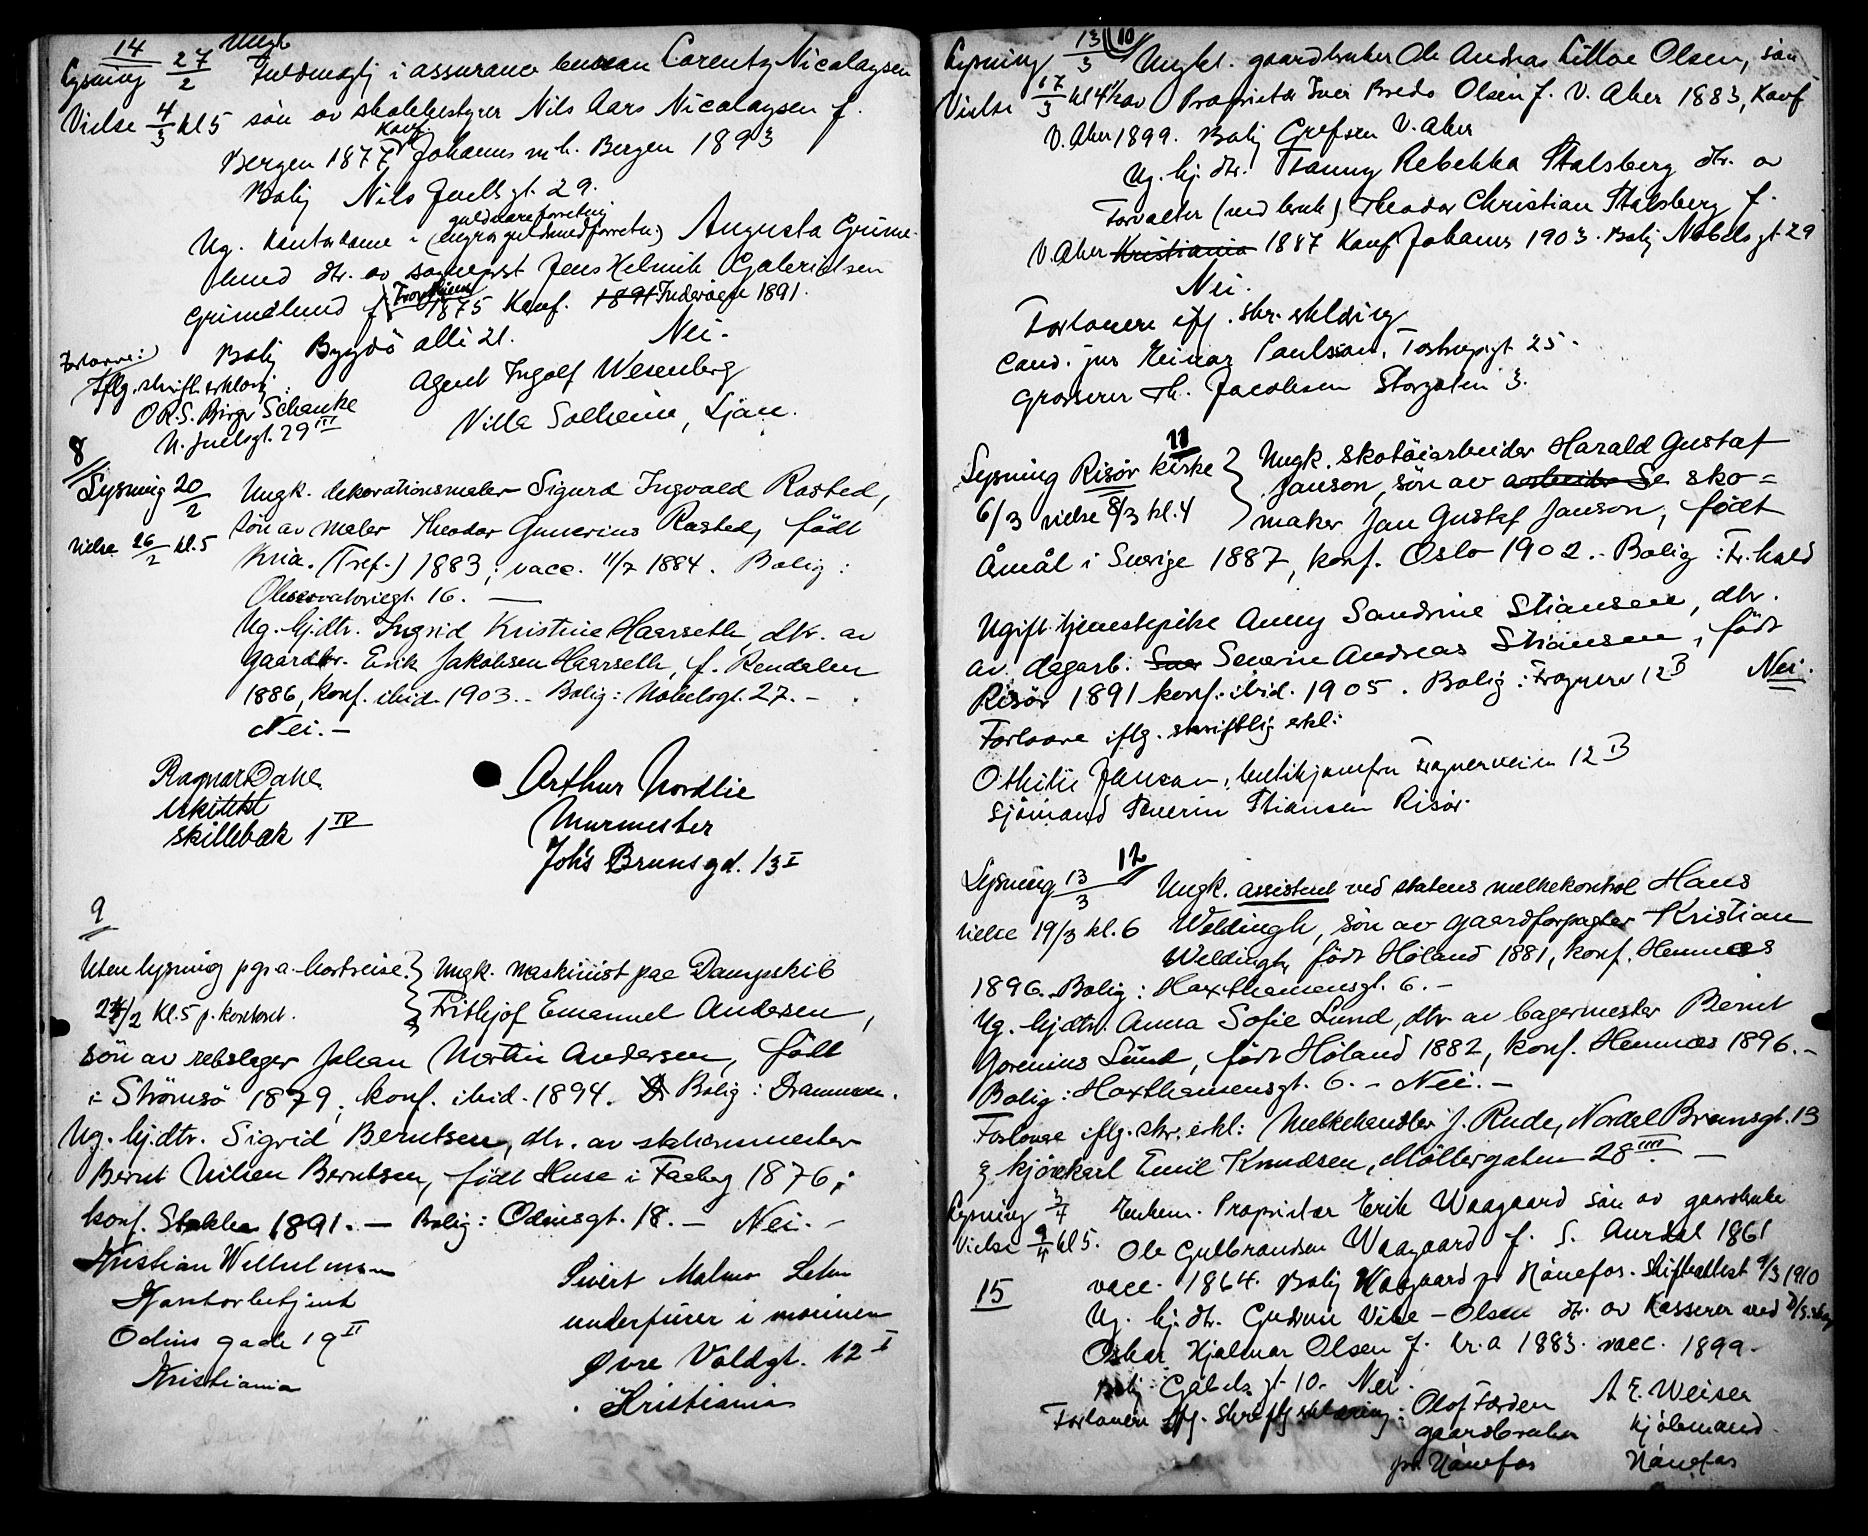 14
Ungk.
Lysning 27/2 fuldmægtig i assurance bureau Carentz Nicolaysen
Vielse 4/3 kl 5 søn av skolebestyrer Nils Aars Nicolaysen f.
Bergen 1877 Konf. Johannes m h. Bergen 1893
Bolig Nils Juelsgt. 29.
guldvareforretning
Ug. kontordame i (engros guldsmedforretn.) Augusta Grime-
lund dtr. av sogneprst Jens Helmik Gabrielsen
Grimelund f. Trondhjem 1875 Konf. 1891 Inderøen 1891.
Bolig Bygdö alle 21. Nei.
Forlovere:
Iflg. skriftl. erklæring:
O.R.S. Birger Schanke
N. Juelsgt. 29 III
Agent Ingolf Wesenberg
Villa Solheim, Ljan.
8
Lysning 20/2 Ungk. dekorationsmaler Sigurd Ingvald Rasted,
vielse 26/2 kl. 5 søn av maler Theodor Gunerius Rasted, født
Kria. (Tref.) 1883; vacc. 11/7 1884. Bolig:
Observatoriegt. 16. —
Ug. hj.dtr. Ingrid Kristine Haarseth, dtr. av
Gaardbr. Erik Jakobsen Haarseth, f. Rendalen
1886, konf. ibid. 1903. - Bolig: Nobelsgt. 27. -
Nei. -
Ragnar Dahl
Arkitekt
Skillebæk 1 IV
Arthur Nordlie
Murmester
Johs Brunsgd. 13 I
9
Uten lysning pga. bortreise.
24/2 Kl. 5 p. kontoret.
Ungk. maskinist paa Dampskib
Fritjof Emanuel Andersen,
søn av rebslager Johan Martin Andersen, født
i Strömsö 1879, konf. ibid. 1894. Bolig: Drammen.
Ug. hj.dtr. Sigrid Berntsen, dtr. av stationsmester
Bernt Nilsen Berntsen, født Huse i Faaberg 1876;
konf. Stokke 1891. — Bolig: Odinsgt. 18. — Nei. -
Kristian Wilhelmsen
Kontorbetjent
Odins gade 19 II
Kristiania
Sivert Malmo
underfürer i marinen
Øvre Voldgt. 12 I
Kristiania
10
Lysning 13/3 Ungkl. gaardbruker Ole Andreas Lilloe Olsen, søn
Vielse 17/3 kl 4½ av Proprietær Iver Bredo Olsen f. V. Aker 1883, Konf
V. Aker 1899. Bolig Grefsen V. Aker
Ug. hj. dtr. Fanny Rebekka Stalsberg dtr. av
Forvalter (ved bruk) Theodor Christian Stalsberg f.
V. Aker Kristiania 1887 Konf Johannes 1903. Bolig Nobelsgt 29
Nei.
Forlovere iflg. skr. erklæring
Cand. jur Heinar Paulsson, Tostrupsgt 25.
Grosserer Th. Jacobsen Storgaten 3.
11
Lysning Risör kirke
6/3 vielse 8/3 kl. 4
Ungk. skotöiarbeider Harald Gustaf
Janson, søn av arbeider Se sko=
maker Jan Gustaf Janson, født
Åmål i Sverige 1887, konf. Oslo 1902. - Bolig: Fr.hald
Ugift tjenestepike Anny Sandrine Stiansen, dtr.
av dagarb. Sver Severin Andreas Stiansen, født
Risör 1891 konf. ibid. 1905. Bolig: Fragnerv 12 B Nei.
Forlovere iflg. skriftlig erkl:
Othilie Janson, butikjomfru Fragnerveien 12 B
Sjömand Severin Stiansen Risör.
12
Lysning 13/3 Ungk. assistent ved statens melkekontrol Hans
vielse 19/3 kl. 6 Weldingh, søn av gaardforpagter Kristian
Weldingh, født Höland 1881, konf. Hemnæs
1896. Bolig: Haxthausensgt. 6. -
Ug. hj.dtr. Anna Sofie Lund, dtr. av bagermester Bernt
Gorenius Lund, født Höland 1882, konf. Hemnæs 1896. -
Bolig: Haxthausensgt. 6. - Nei. -
Forlovere iflg. skr. erkl: Melkehandler J. Rude, Nordal Brunsgt. 13
& kjörekarl Emil Knudsen, Möllergaten 28 IIII. —
Lysning 3/4 Enkem. Proprietær Erik Waagaard søn av gaardbruker
Vielse 9/4 kl 5. Ole Gulbrandsen Waagaard f. S. Aurdal 1861
15
vacc. 1864. Bolig Waagaard pr Hönefos. Skifteattest 9/3 1910
Ug. hj. dtr. Gudrun Vibe-Olsen dtr. av Kasserer ved
Oskar Hjalmar Olsen f. Kr.a 1883. vacc. 1899.
Bolig Gabels gt 10. Nei.
Forlovere iflg. skriftlig erklæring: Olof Færden A E. Weisen
gaardbruker Kjöbmand.
pr. Hönefos Hönefos